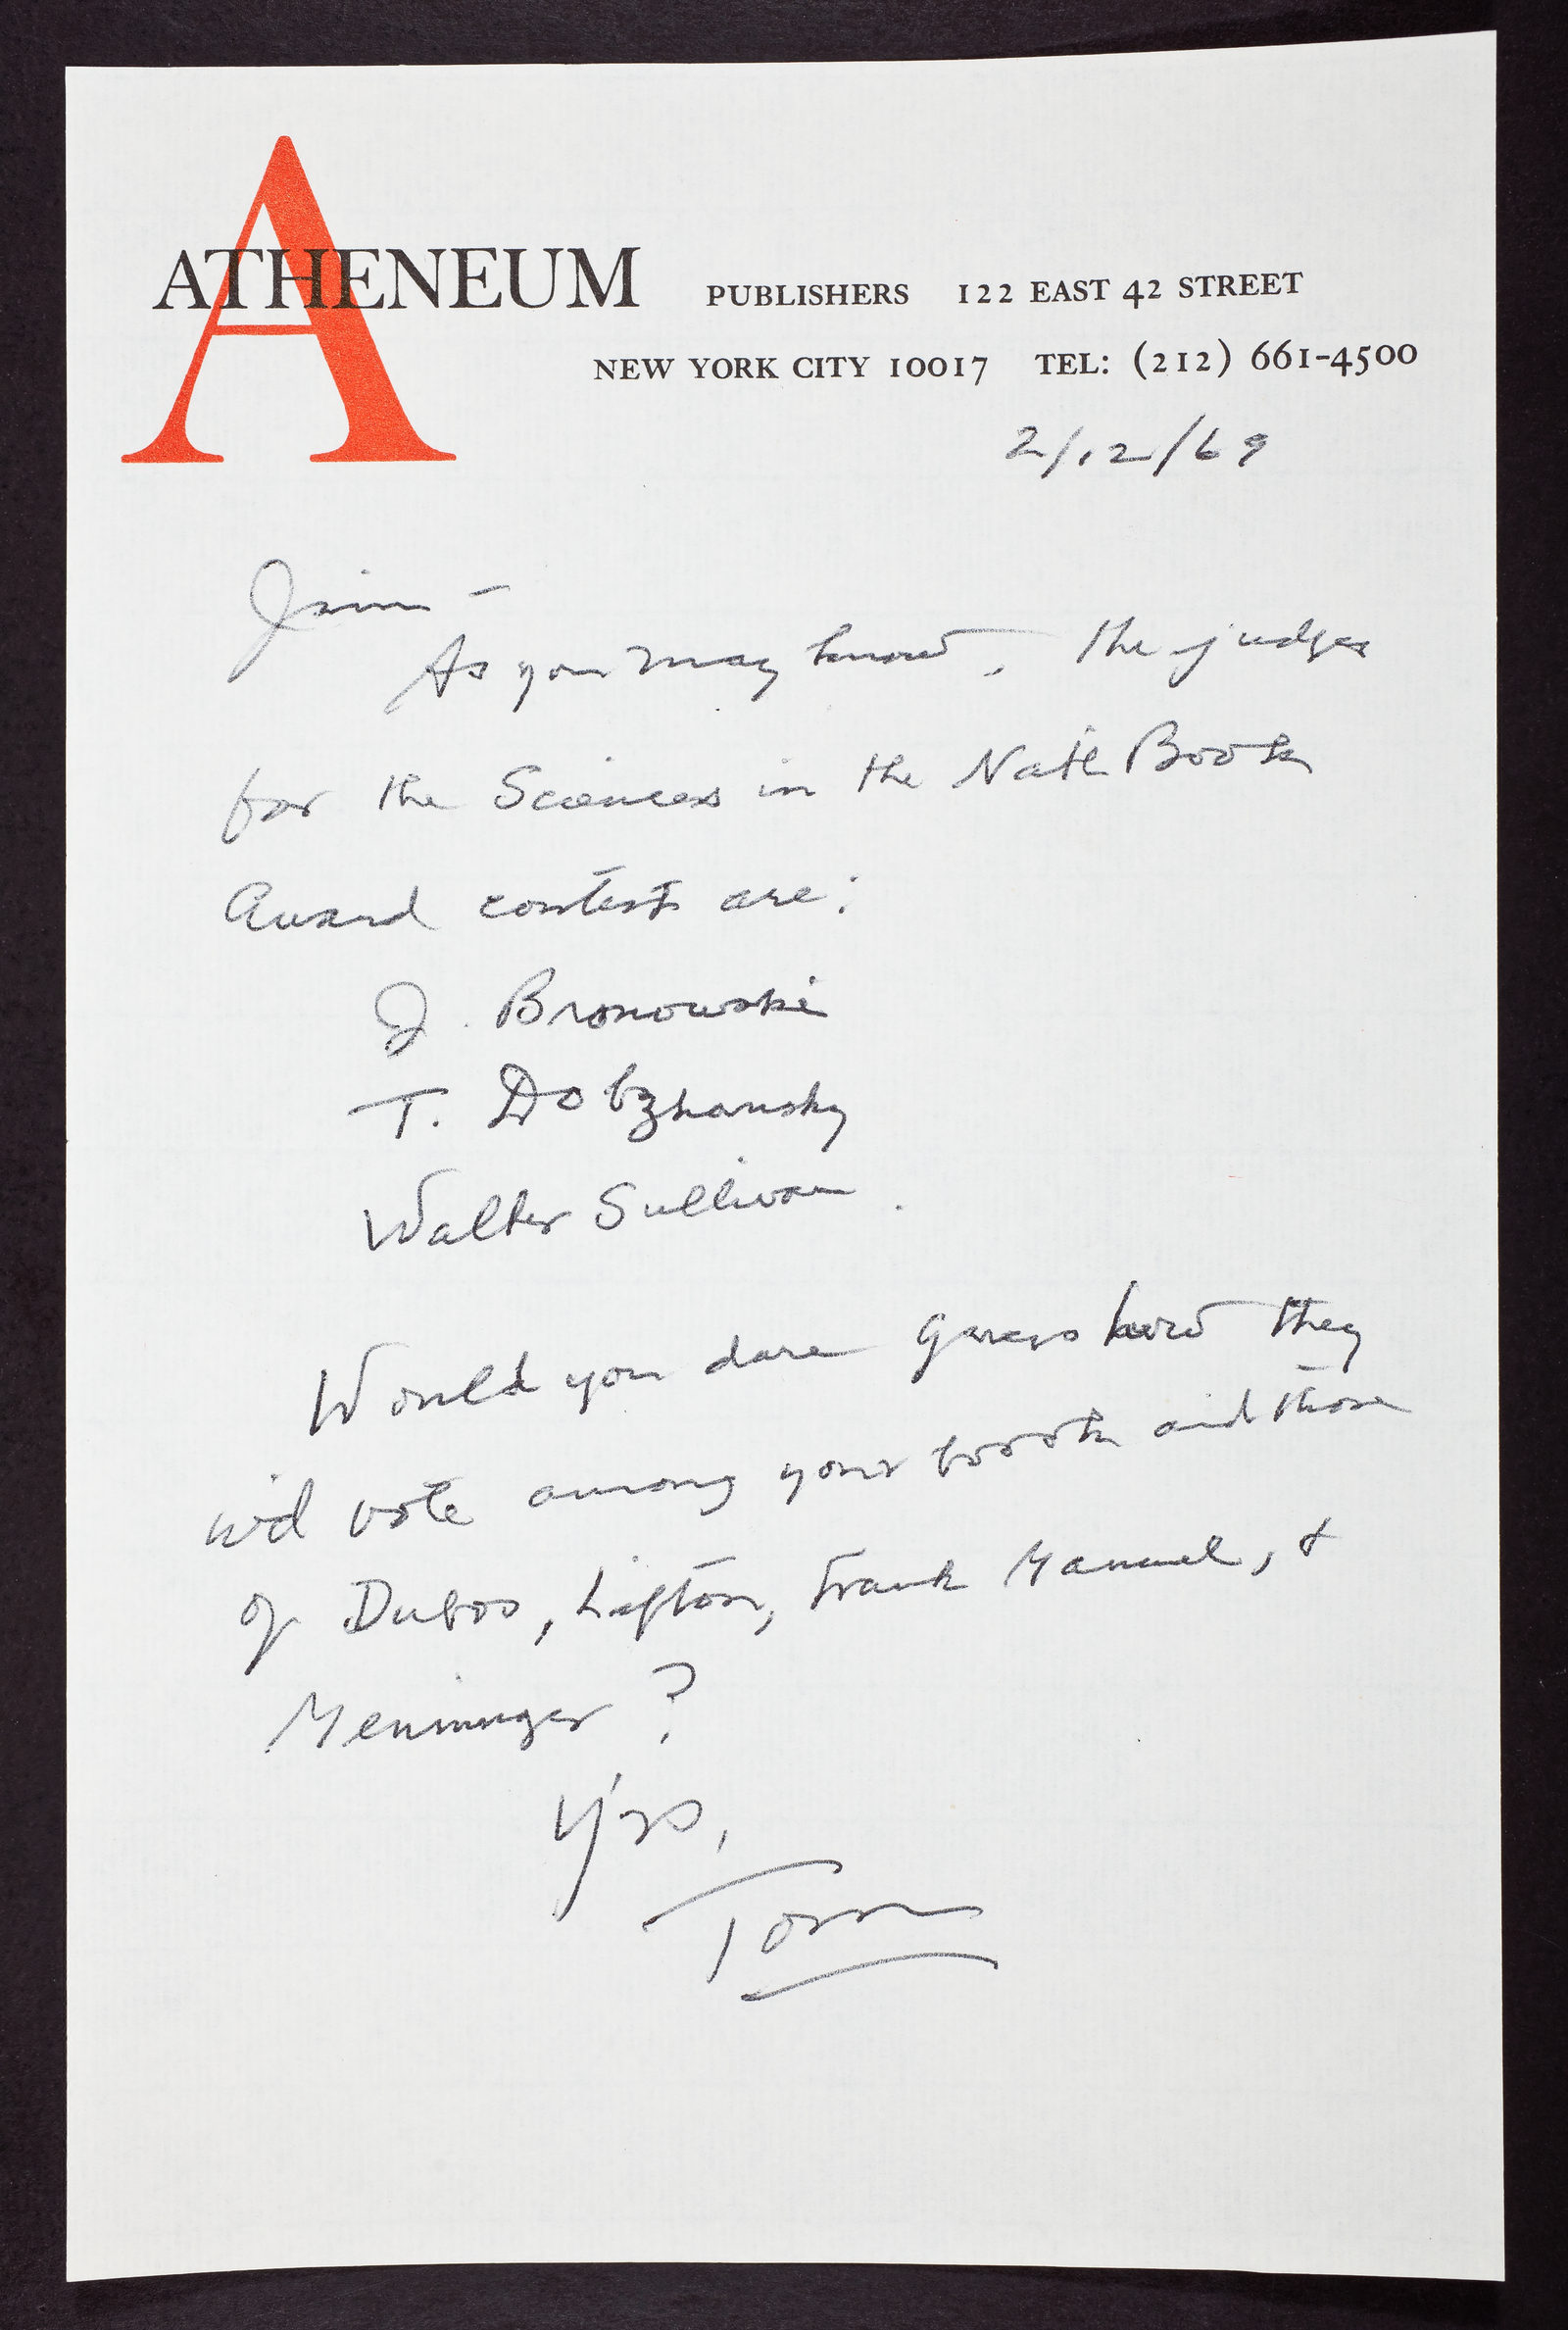 A
ATHENEUM PUBLISHERS 122 EAST 42 STREET
NEW YORK CITY 10017 TEL: (212) 661-4500
2/12/69
Jim –
As you may know, the judges
for the Sciences in the Nat'l Book
Award contest are:
J. Bronowski
T. Dobzhansky
Walter Sullivan.
Would you dare guess how they
w'd vote among your book and those
of Dubos, Lifton, Frank Manuel, &
Menninger?
Y'rs,
Tom